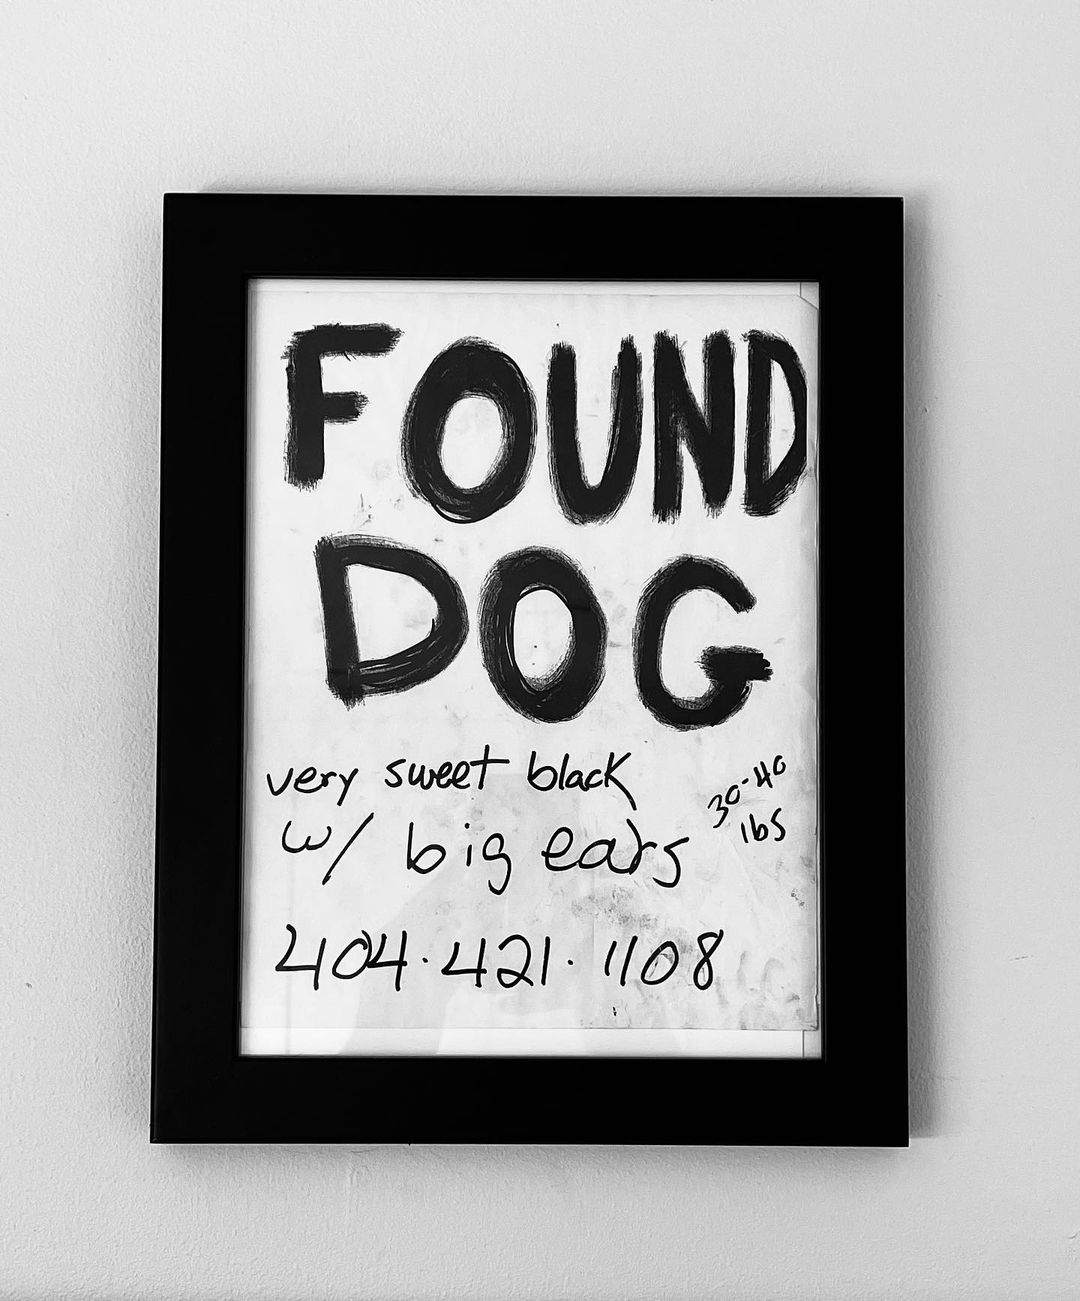 FOUND
DOG
very sweet black
w/ big ears
30-40
lbs
404·421·1108